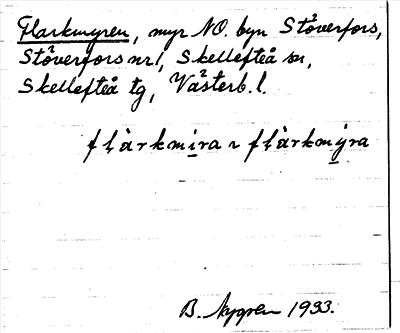 Flarkmyren, myr NO. byn Stöverfors,
Stöverfors nr 1, Skellefteå sn,
Skellefteå tg, Västerb. l.
flàrkmira ~ flàrkmýra
B. Nygren 1933.